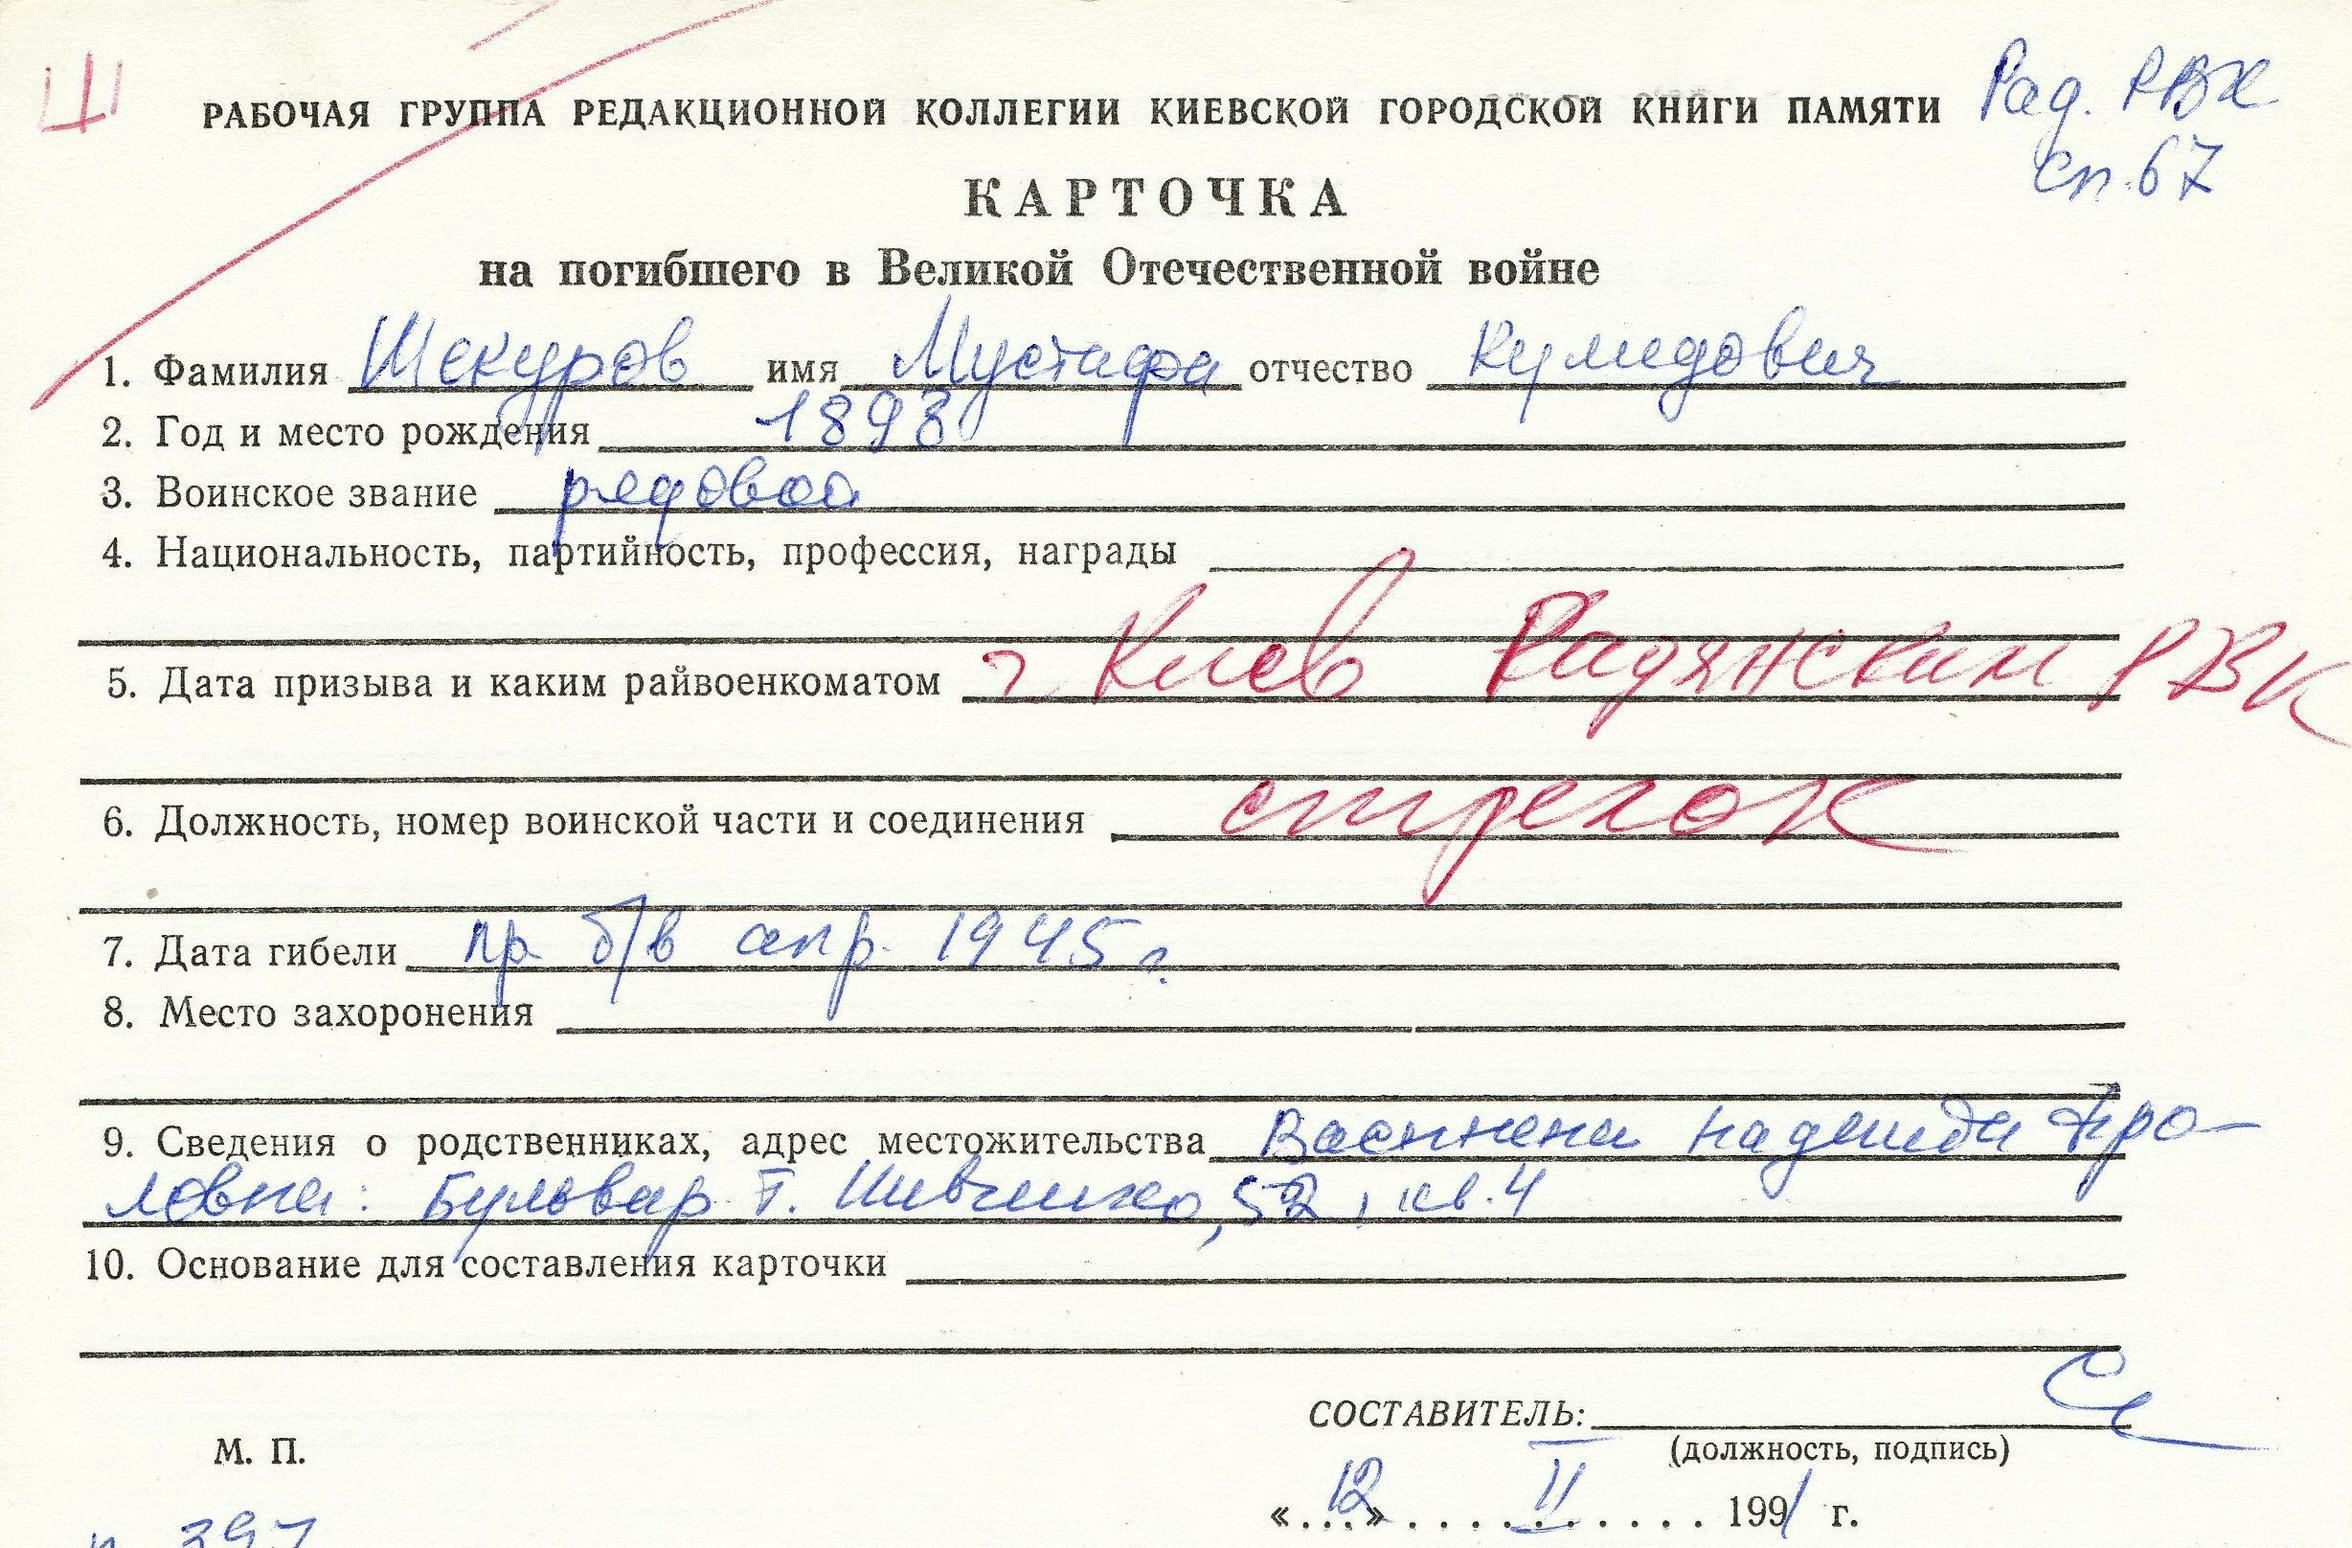 Ш
РАБОЧАЯ ГРУППА РЕДАКЦИОННОЙ КОЛЛЕГИИ КИЕВСКОЙ ГОРОДСКОЙ КНИГИ ПАМЯТИ Рад. РВК
сп. 67
КАРТОЧКА
на погибшего в Великой Отечественной войне
1. Фамилия Шекуров имя Мустафа отчество
2. Год и место рождения 1898
3. Воинское звание рядовой
4. Национальность, партийность, профессия, награды
5. Дата призыва и каким райвоенкоматом г Киев Радянским РВК
6. Должность, номер воинской части и соединения стрелок
7. Дата гибели пр б/в апр. 1945 г.
8. Место захоронения
9. Сведения о родственниках, адрес местожительства Надежда
Бульвар Т. Шевченко, 52, кв. 4
10. Основание для составления карточки
СОСТАВИТЕЛЬ:
М. П. (должность, подпись)
«12» II 1991 г.